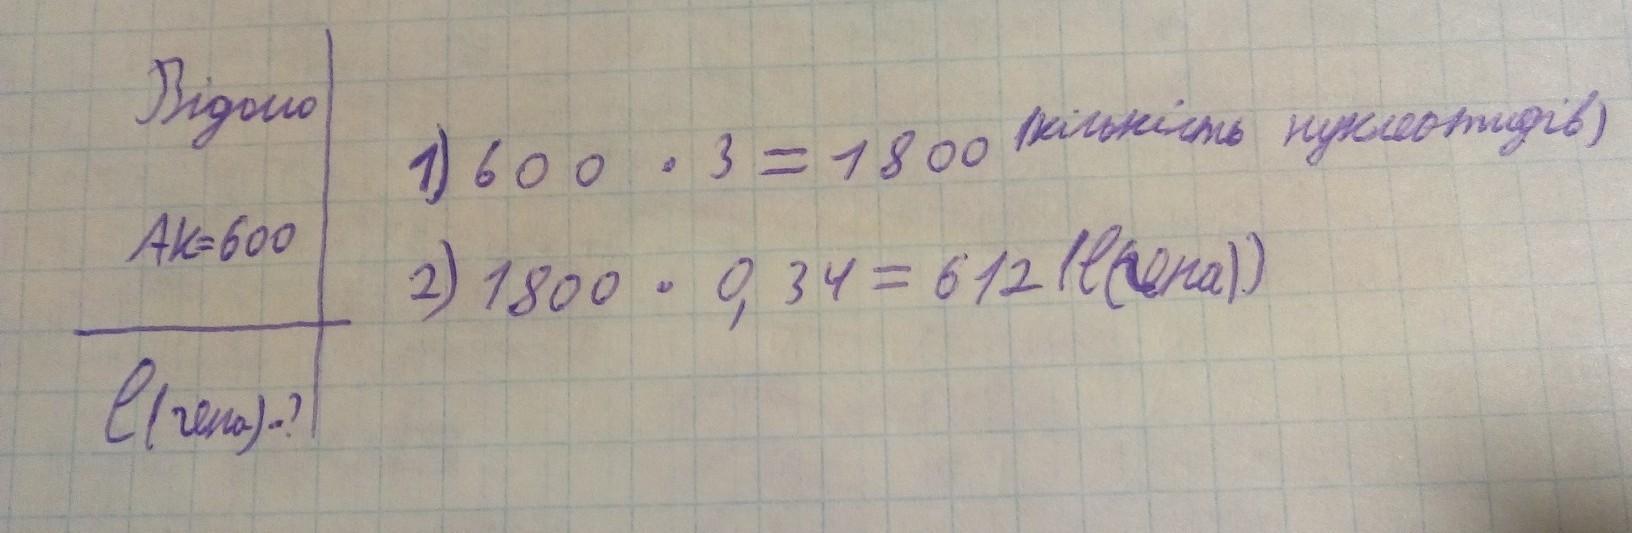 Відомо
АК=600
l(гена)-?
1) 600 · 3 = 1800 (кількість нуклеотидів)
2) 1800 · 0,34 = 612 (l(гена))